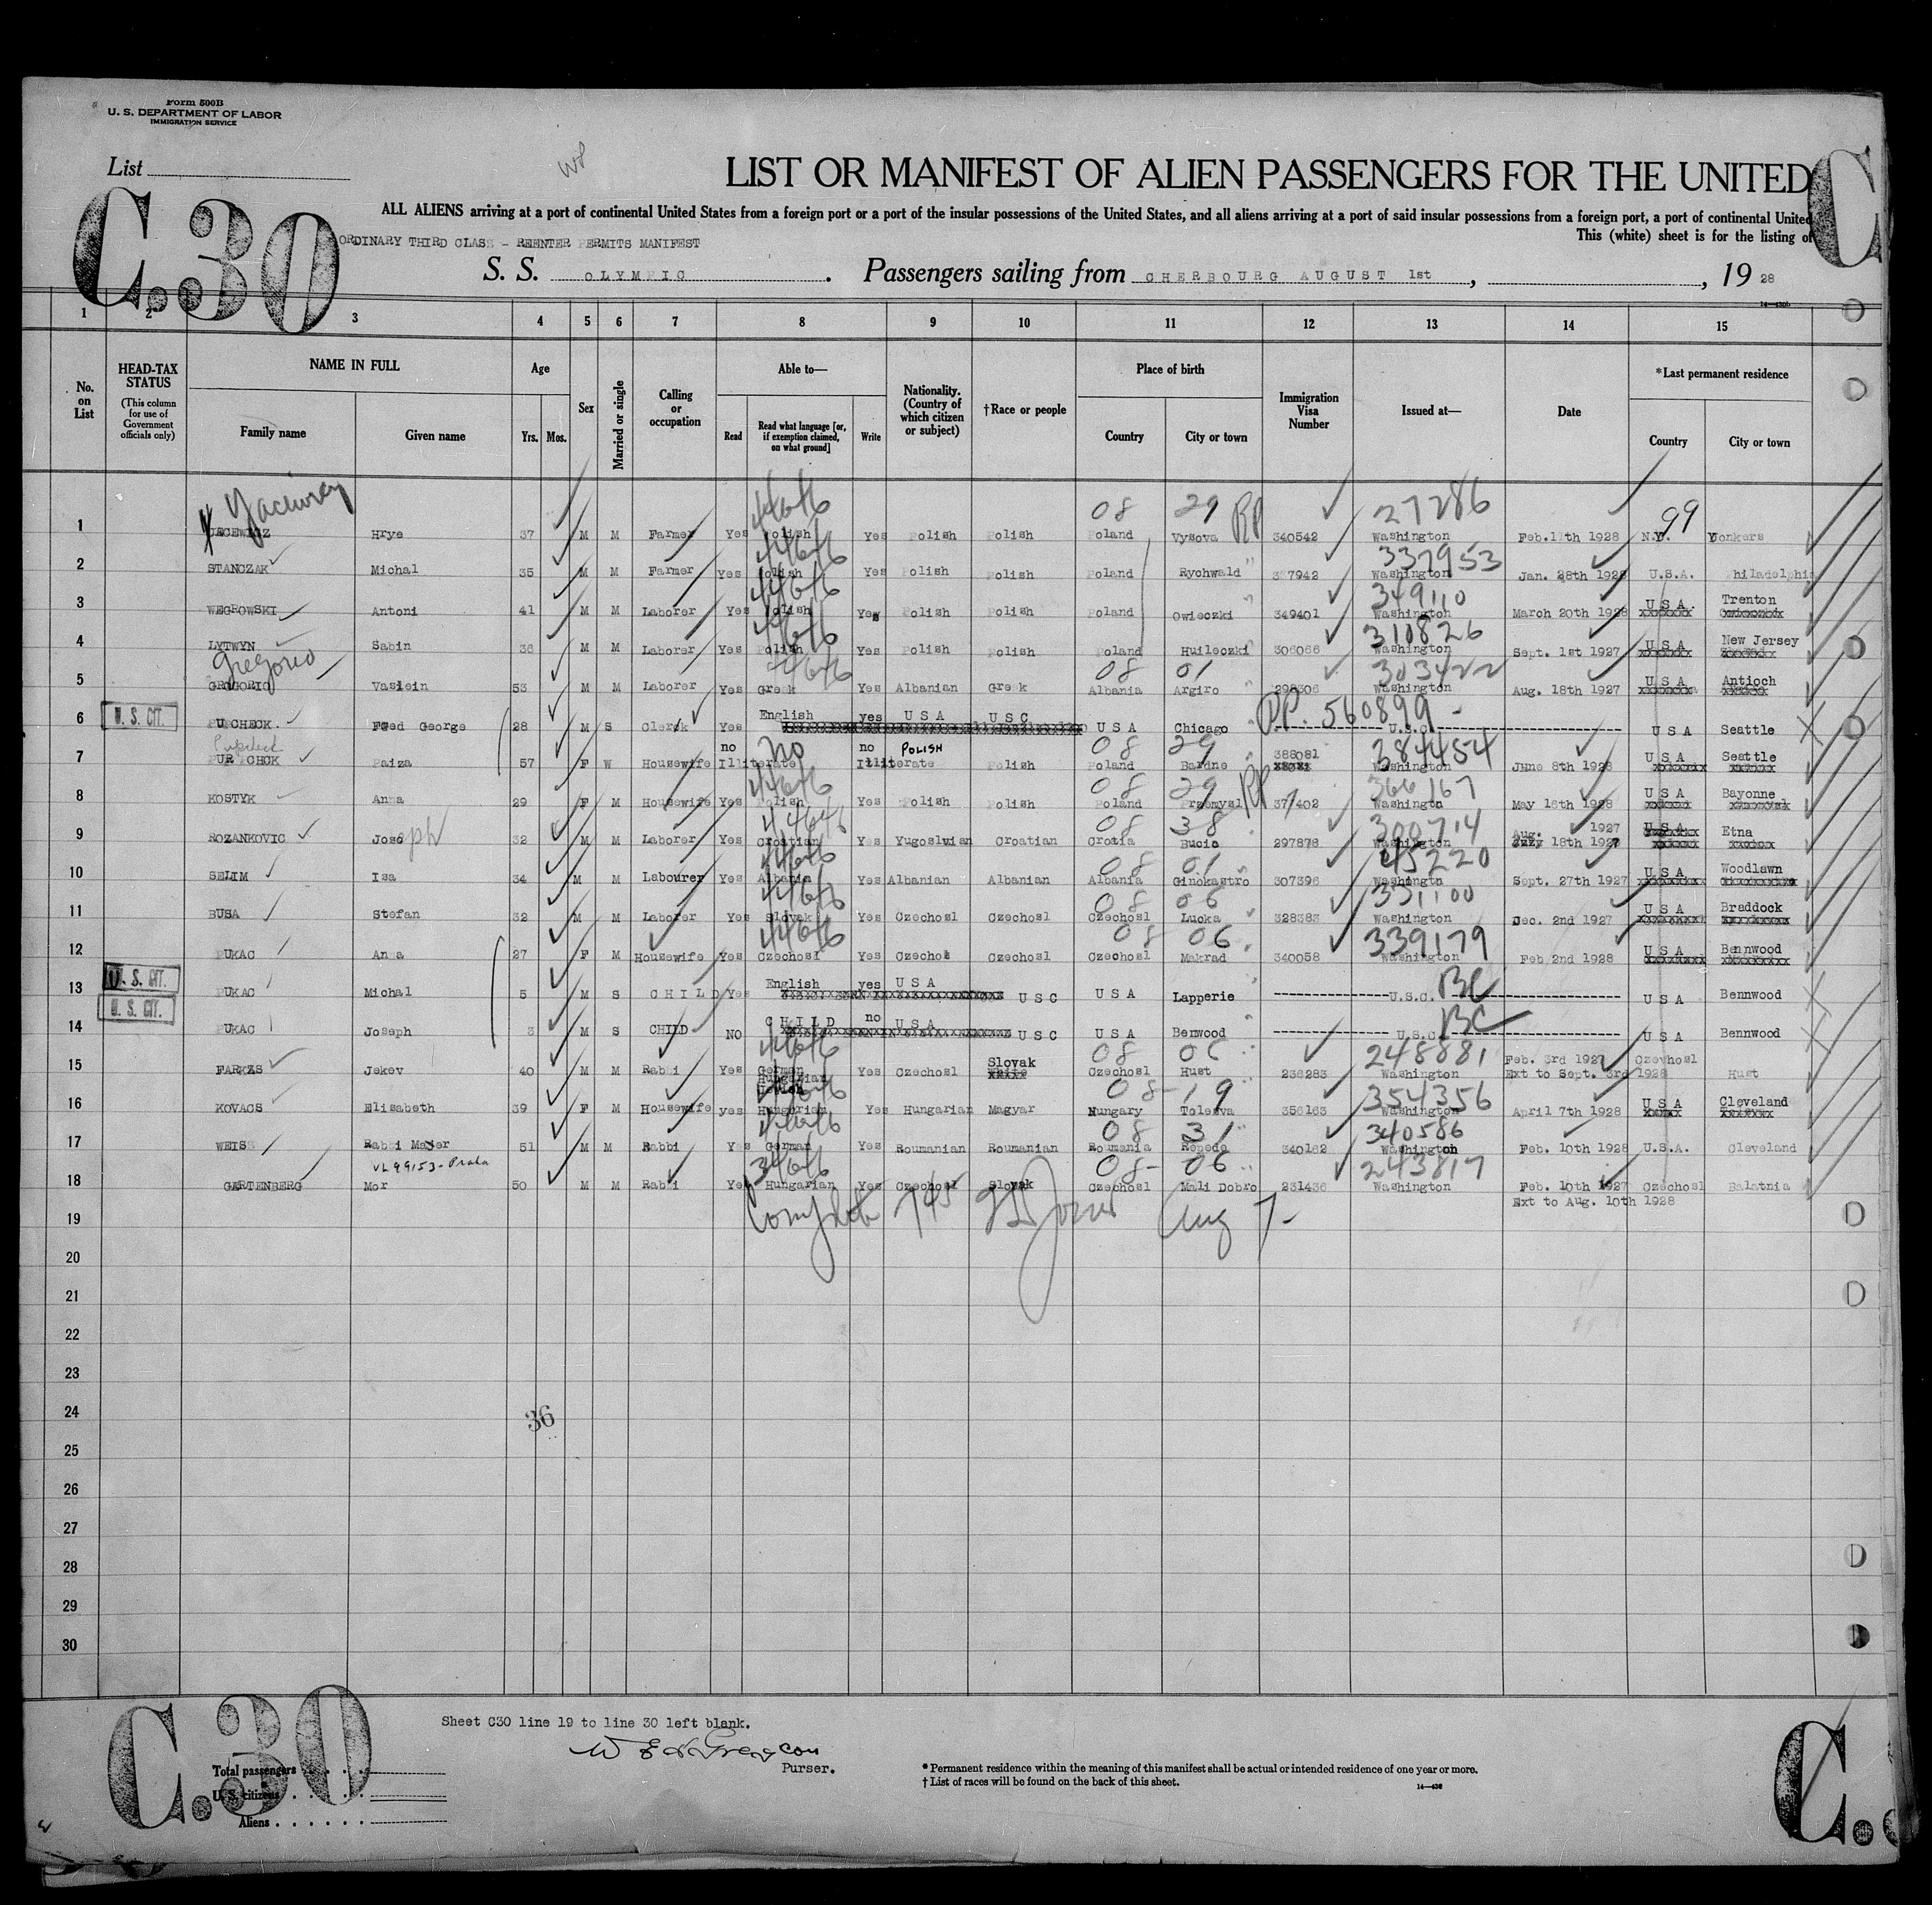 Form 500B
U. S. DEPARTMENT OF LABOR
IMMIGRATION SERVICE
List
LIST OR MANIFEST OF ALIEN PASSENGERS FOR THE UNITED
ALL ALIENS arriving at a port of continental United States from a foreign port or a port of the insular possessions of the United States, and all aliens arriving at a port of said insular possessions from a foreign port, a port of continental United
This (white) sheet is for the listing of
C.30
C
ORDINARY THIRD CLASS - REENTER PERMITS MANIFEST
S. S. OLYMPIC. Passengers sailing from CHERBOURG AUGUST 1st, , 19 28
1 2 3 4 5 6 7 8 9 10 11 12 13 14 15
No. on List
HEAD-TAX STATUS (This column for use of Government officials only)
NAME IN FULL Family name Given name
Age Yrs. Mos.
Sex
Married or single
Calling or occupation
Able to— Read Read what language [or, if exemption claimed, on what ground] Write
Nationality. (Country of which citizen or subject)
†Race or people
Place of birth Country City or town
Immigration Visa Number
Issued at—
Date
*Last permanent residence Country City or town
4646 08 29 RP 27286 99
1 Hrye 37 M M Farmer Yes Polish Yes Polish Polish Poland Vysova 340542 Washington Feb.11th 1928 N.Y. Yonkers
4646 337953
2 STANCZAK Michal 35 M M Farmer Yes Polish Yes Polish Polish Poland Rychwald 337942 Washington Jan. 28th 1928 U.S.A. Philadelphia
4646 349110
3 WEGROWSKI Antoni 41 M M Laborer Yes Polish Yes Polish Polish Poland Owieczki 349401 Washington March 20th 1928 U S A. Trenton
4646 310826
4 LYTWYN Sabin 36 M M Laborer Yes Polish Yes Polish Polish Poland Huileczki 306066 Washington Sept. 1st 1927 U S A New Jersey
Gregorio 4646 08 01 303422
5 GROGORIO Vaslein 53 M M Laborer Yes Greek Yes Albanian Greek Albania Argiro 298306 Washington Aug. 18th 1927 U S A Antioch
6 U. S. CIT. PUPCHECK Fred George 28 M S Clerk Yes English yes U S A U S C U S A Chicago PP. 560899 U.S.C. U S A Seattle
no No no POLISH 08 29 388081 384454
7 Paiza 57 F W Housewife Illiterate Illiterate Polish Poland Baldne Washington June 8th 1928 U S A Seattle
4646 08 29 RP 366167
8 KOSTYK Anna 29 F M Housewife Yes Polish Yes Polish Polish Poland Przemysl 371402 Washington May 18th 1928 U S A Bayonne
4646 08 38 300714
9 ROZANKOVIC Joseph 32 M M Laborer Yes Croatian Yes Yugosluian Croatian Crotia Bucic 297878 Washington Aug. 18th 1927 U S A Etna
4646 08 01 45220
10 SELIM Isa 34 M M Labourer Yes Albania Yes Albanian Albanian Albania Ginokastro 307396 Washingtn Sept. 27th 1927 U S A Woodlawn
4646 08 06 331100
11 BUSA Stefan 32 M M Laborer Yes Slovak Yes Czechosl Czechosl Czechosl Lucka 328383 Washington Dec. 2nd 1927 U S A Braddock
4646 08 06 339179
12 PUKAC Anna 27 F M Housewife Yes Czechosl Yes Czechosl Czechosl Czechosl Makrad 340058 Washington Feb 2nd 1928 U S A Bennwood
13 U. S. CIT. PUKAC Michal 5 M S CHILD Yes English yes U S A U S C U S A Lapperie U.S.C. BC U S A Bennwood
14 U. S. CIT. PUKAC Joseph 3 M S CHILD NO CHILD no U S A U S C U S A Benwood U.S.C. BC U S A Bennwood
4646 08 06 248881
15 FARKAS Jekev 40 M M Rabbi Yes German Hungarian Yes Czechosl Slovak Czechosl Hust 236283 Washington Feb. 3rd 1927 Ext to Sept. 3rd 1928 Czechosl Hust
4646 08-19 354356
16 KOVACS Elisabeth 39 F M Housewife yes Hungarian Yes Hungarian Magyar Hungary Tolesva 356163 Washington April 7th 1928 U S A Cleveland
4646 08 31 340586
17 WEISS Rabbi Majer 51 M M Rabbi Yes German Yes Roumanian Roumanian Roumania Repede 340182 Washington Feb. 10th 1928 U.S.A. Cleveland
3646 08-06 243817
18 GARTENBERG Mor 50 M M Rabbi Yes Hungarian Yes Czechosl Slovak Czechosl Mali Dobro 231436 Washington Feb. 10th 1927 Czechosl Balatnia
Ext to Aug. 10th 1928
Complete Aug 7-
19
20
21
22
23
24
36
25
26
27
28
29
30
C.30
Sheet C30 line 19 to line 30 left blank.
Purser.
Total passengers
U. S. citizens
Aliens
* Permanent residence within the meaning of this manifest shall be actual or intended residence of one year or more.
† List of races will be found on the back of this sheet.
C.